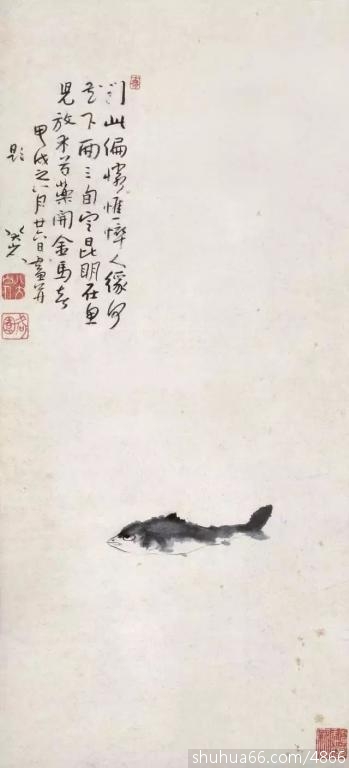 到此偏憐憔悴人緣何
花下兩三旬定昆明在魚
兒放木芍藥開金馬春
甲戌之八月廿六日畫并
題 八大山人
shuhua66.com/4866